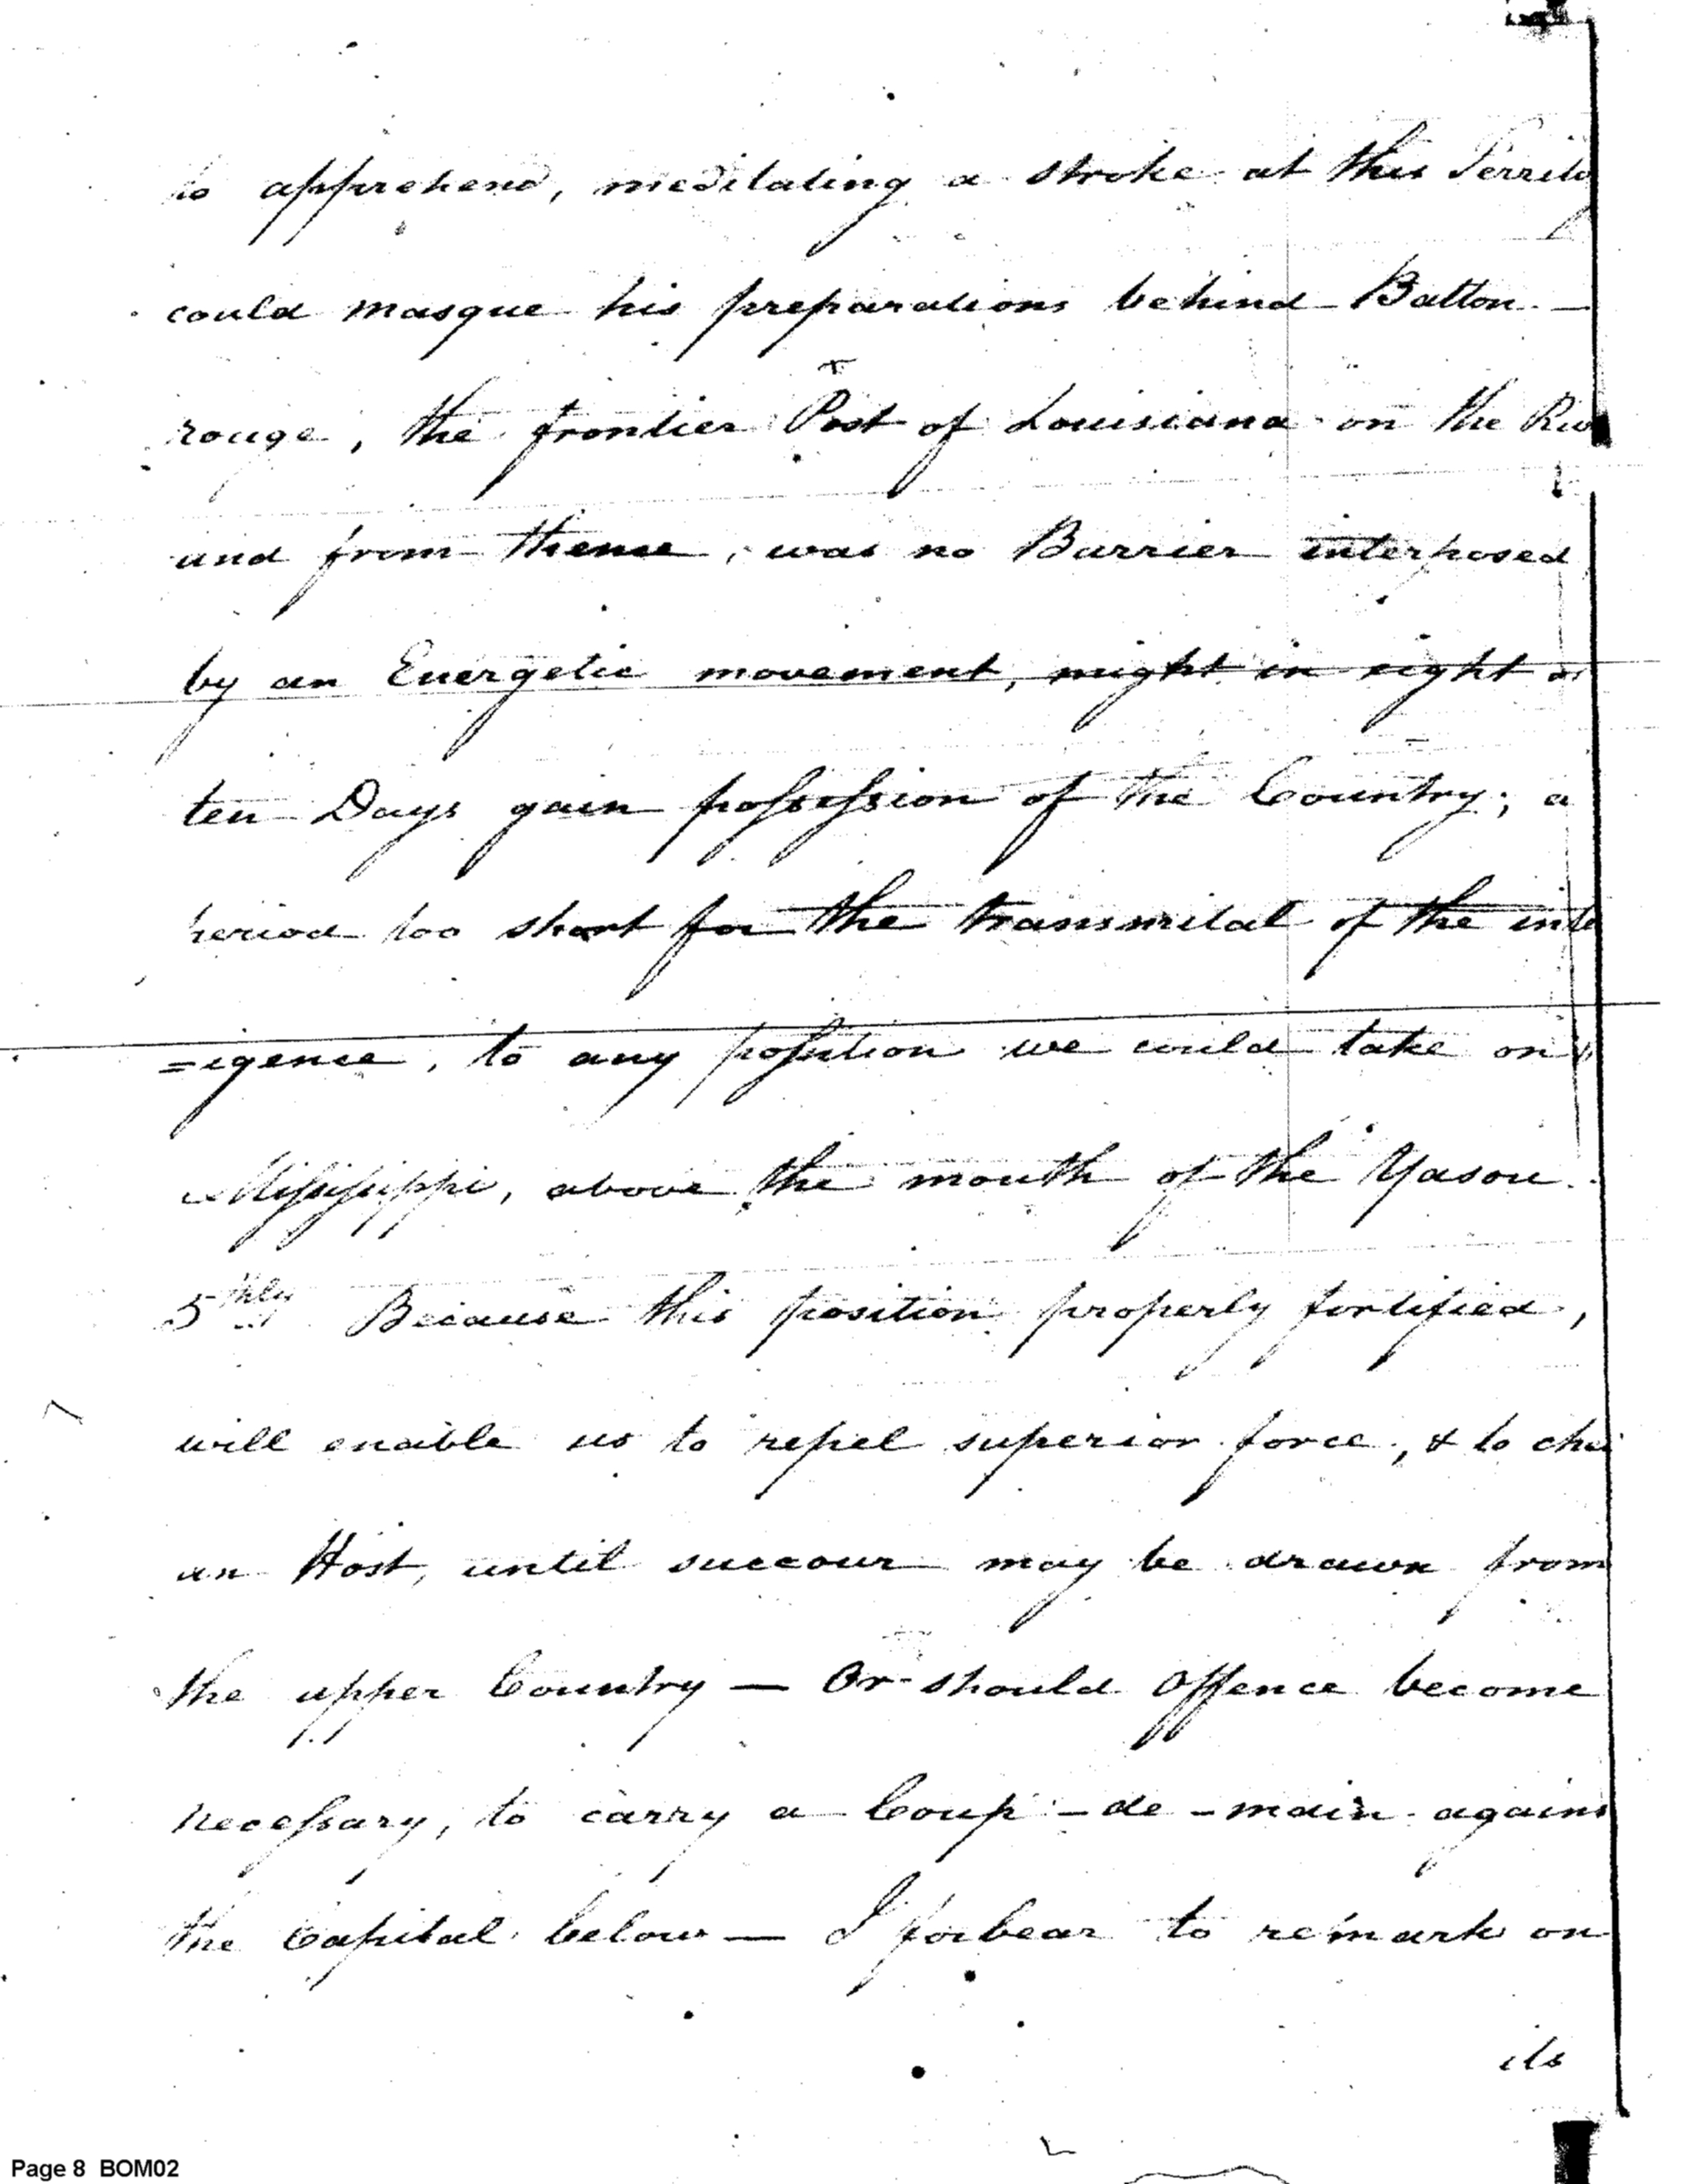 to apprehend, meditating a stroke at this Territo
could masque his preparations behind Batton —
rouge, the frontier Post of Louisiana on the Riv
and from thence, was no Barrier interposed
by an Energetic movement, might in eight or
ten Days gain possession of the Country; a
period too short for the transmital of the inte
=igence, to any possition we could take on
Mississippi, above the mouth of the Yasou.
5thly Because this position properly fortified,
will enable us to repel superior force, & to che
an Host, until succour may be drawn from
the upper Country — Or should Offence become
necessary, to carry a Coup-de-main agains
the Capital below — I forbear to remark on
its
Page 8 BOM02